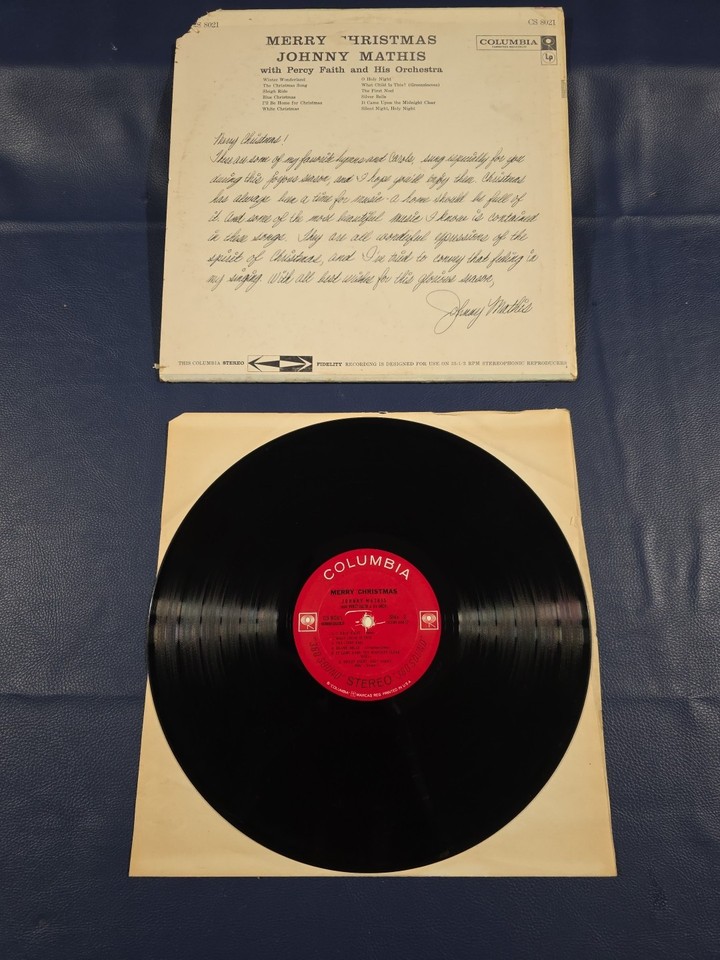 S 8021
CS 8021
MERRY CHRISTMAS
JOHNNY MATHIS
with Percy Faith and His Orchestra
COLUMBIA
Lp
Winter Wonderland
The Christmas Song
Sleigh Ride
Blue Christmas
I'll Be Home for Christmas
White Christmas
O Holy Night
What Child Is This? (Greensleeves)
The First Noel
Silver Bells
It Came Upon the Midnight Clear
Silent Night, Holy Night
Merry Christmas!
These are some of my favorite hymns and carols, sung especially for you
during this joyous season, and I hope you'll enjoy them. Christmas
has always been a time for music - a home should be full of
it. And some of the most beautiful music I know is contained
in these songs. They are all wonderful expressions of the
spirit of Christmas, and I've tried to convey that feeling in
my singing. With all best wishes for this glorious season,
Johnny Mathis
THIS COLUMBIA STEREO FIDELITY RECORDING IS DESIGNED FOR USE ON 33 1/3 RPM STEREOPHONIC REPRODUCERS
COLUMBIA
MERRY CHRISTMAS
JOHNNY MATHIS
STEREO
® COLUMBIA MARCAS REG. PRINTED IN U.S.A.